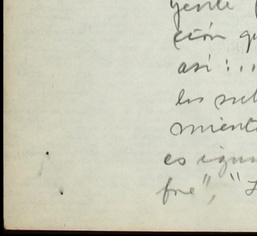 gente
ción q
así:..
los sub
mient
es igua
fre", "L